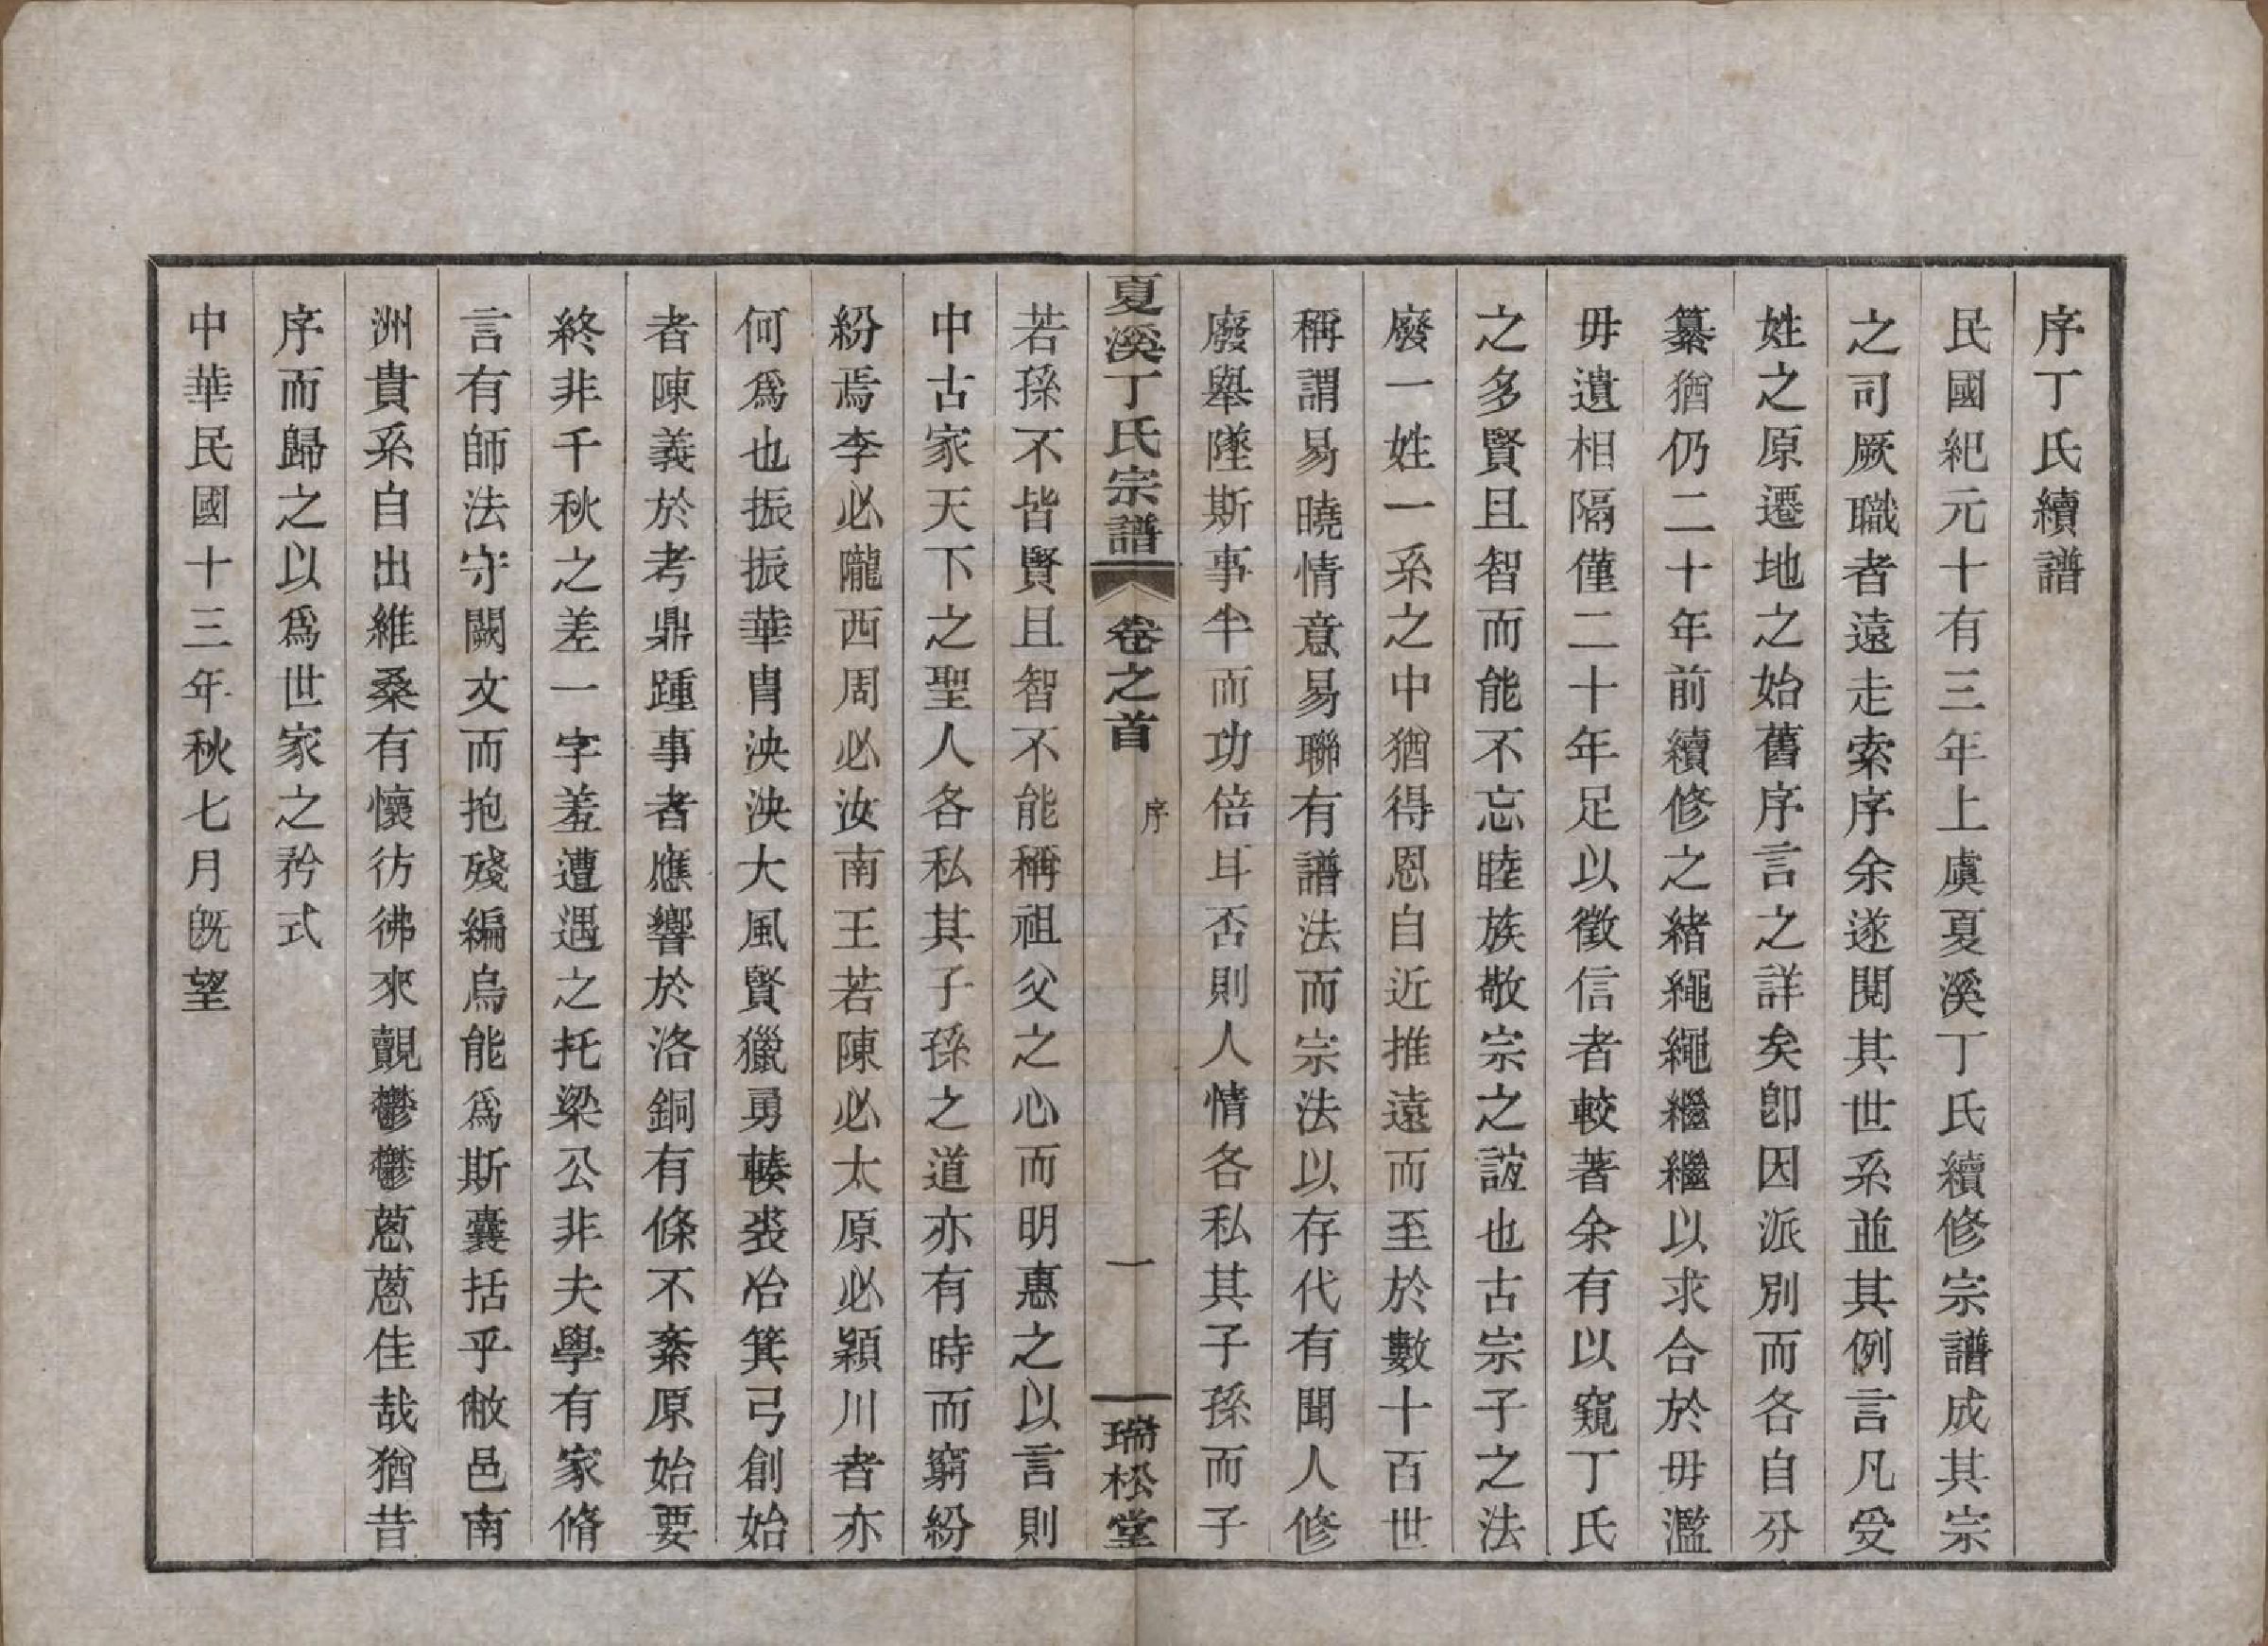 序丁氏續譜
民國紀元十有三年上虞夏溪丁氏續修宗譜成其宗
之司厥職者遠走索序余遂閱其世系並其例言凡受
姓之原遷地之始舊序言之詳矣卽因派別而各自分
纂猶仍二十年前續修之緒繩繩繼繼以求合於毋濫
毋遺相隔僅二十年足以徵信者較著余有以窺丁氏
之多賢且智而能不忘睦族敬宗之誼也古宗子之法
廢一姓一系之中猶得恩自近推遠而至於數十百世
稱謂易曉情意易聯有譜法而宗法以存代有聞人修
廢舉墜斯事半而功倍耳否則人情各私其子孫而子
夏溪丁氏宗譜 卷之首 序 一 瑞松堂
若孫不皆賢且智不能稱祖父之心而明惠之以言則
中古家天下之聖人各私其子孫之道亦有時而窮紛
紛焉李必隴西周必汝南王若陳必太原必潁川者亦
何爲也振振華胄泱泱大風賢獵勇轅裘冶箕弓創始
者陳義於考鼎踵事者應響於洛銅有條不紊原始要
終非千秋之差一字羞遭遇之托梁公非夫學有家脩
言有師法守闕文而抱殘編烏能爲斯囊括乎敝邑南
洲貴系自出維桑有懷彷彿來覿鬱鬱蔥蔥佳哉猶昔
序而歸之以爲世家之矜式
中華民國十三年秋七月旣望